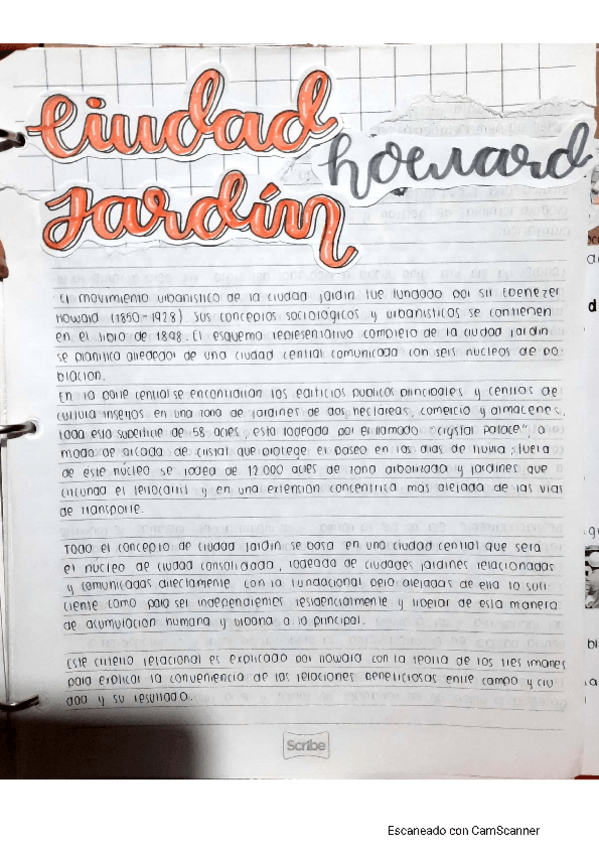 Ciudad
Howard
Jardín
El movimiento urbanistico de la ciudad jardin fue fundado por Sir Ebenezer
Howard (1850-1928) sus conceptos sociológicos y urbanisticos se contienen
en el libro de 1898. El esquema representativo completo de la ciudad jardin
se planifica alrededor de una ciudad central comunicada con seis nucleos de po
blacion.
En la parte central se encontrarian los edificios publicos principales y centros de
cultura insertos en una zona de jardines de dos hectareas, comercio y almacenes,
toda esta superficie de 58 acres, esta rodeada por el llamado "crystal palace", a
modo de arcada de cristal que protege el paseo en los dias de lluvia; fuera
de este núcleo se rodea de 12 000 acres de zona arbolada y jardines que
circunda el ferrocarril y en una extension concentrica mas alejada de las vias
de transporte.
Todo el concepto de ciudad jardin se basa en una ciudad central que sera
el núcleo de ciudad consolidada, rodeada de ciudades jardines relacionadas
y comunicadas directamente con la fundacional pero alejadas de ella lo sufi
ciente como para ser independientes residencialmente y liberar de esta manera
de acumulacion humana y urbana a la principal.
Este criterio relacional es explicado por Howard con la teoria de los tres imanes
para explicar la conveniencia de las relaciones beneficiosas entre campo y ciu
dad y su resultado.
Scribe
Escaneado con CamScanner